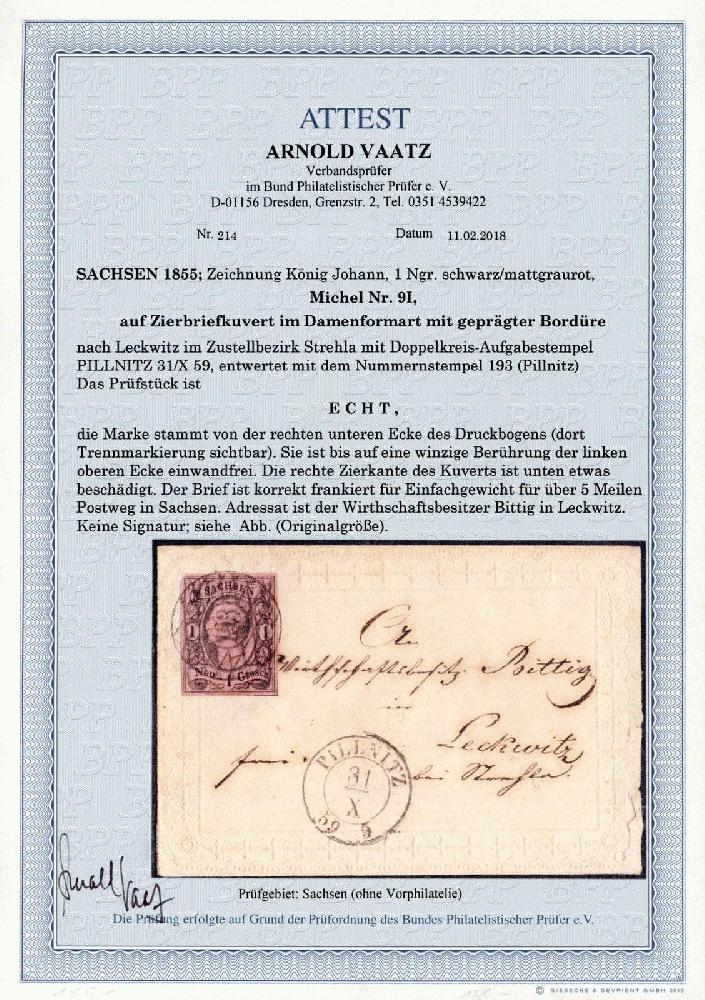 ATTEST
ARNOLD VAATZ
Verbandsprüfer
im Bund Philatelistischer Prüfer e. V.
D-01156 Dresden, Grenzstr. 2, Tel. 0351 4539422
Nr. 214 Datum 11.02.2018
SACHSEN 1855; Zeichnung König Johann, 1 Ngr. schwarz/mattgraurot,
Michel Nr. 9I,
auf Zierbriefkuvert im Damenformart mit geprägter Bordüre
nach Leckwitz im Zustellbezirk Strehla mit Doppelkreis-Aufgabestempel
PILLNITZ 31/X 59, entwertet mit dem Nummernstempel 193 (Pillnitz)
Das Prüfstück ist
ECHT,
die Marke stammt von der rechten unteren Ecke des Druckbogens (dort
Trennmarkierung sichtbar). Sie ist bis auf eine winzige Berührung der linken
oberen Ecke einwandfrei. Die rechte Zierkante des Kuverts ist unten etwas
beschädigt. Der Brief ist korrekt frankiert für Einfachgewicht für über 5 Meilen
Postweg in Sachsen. Adressat ist der Wirthschaftsbesitzer Bittig in Leckwitz.
Keine Signatur; siehe Abb. (Originalgröße).
SACHSEN
1 1
Neu 1 Grosch
Wirthschaftsbesitz. Bittig
in
Leckwitz
bei Strehla.
PILLNITZ
31
X
59 5
Arnold Vaatz
Prüfgebiet: Sachsen (ohne Vorphilatelie)
Die Prüfung erfolgte auf Grund der Prüfordnung des Bundes Philatelistischer Prüfer e.V.
© GIESECKE & DEVRIENT GMBH 2010